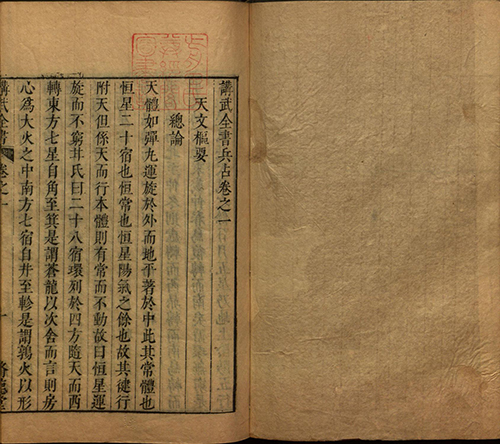 講武全書兵占卷之一
天文樞要
總論
天體如彈丸運旋於外而地平著於中此其常體也
恒星二十宿也恒常也恒星陽氣之餘也故其健行
附天但係天而行本體則有常而不動故曰恒星運
旋而不窮甘氏曰二十八宿環列於四方隨天而西
轉東方七星自角至箕是謂蒼龍以次舍而言則房
心為大火之中南方七宿自井至軫是謂鶉火以形
講武全書
卷之一
一